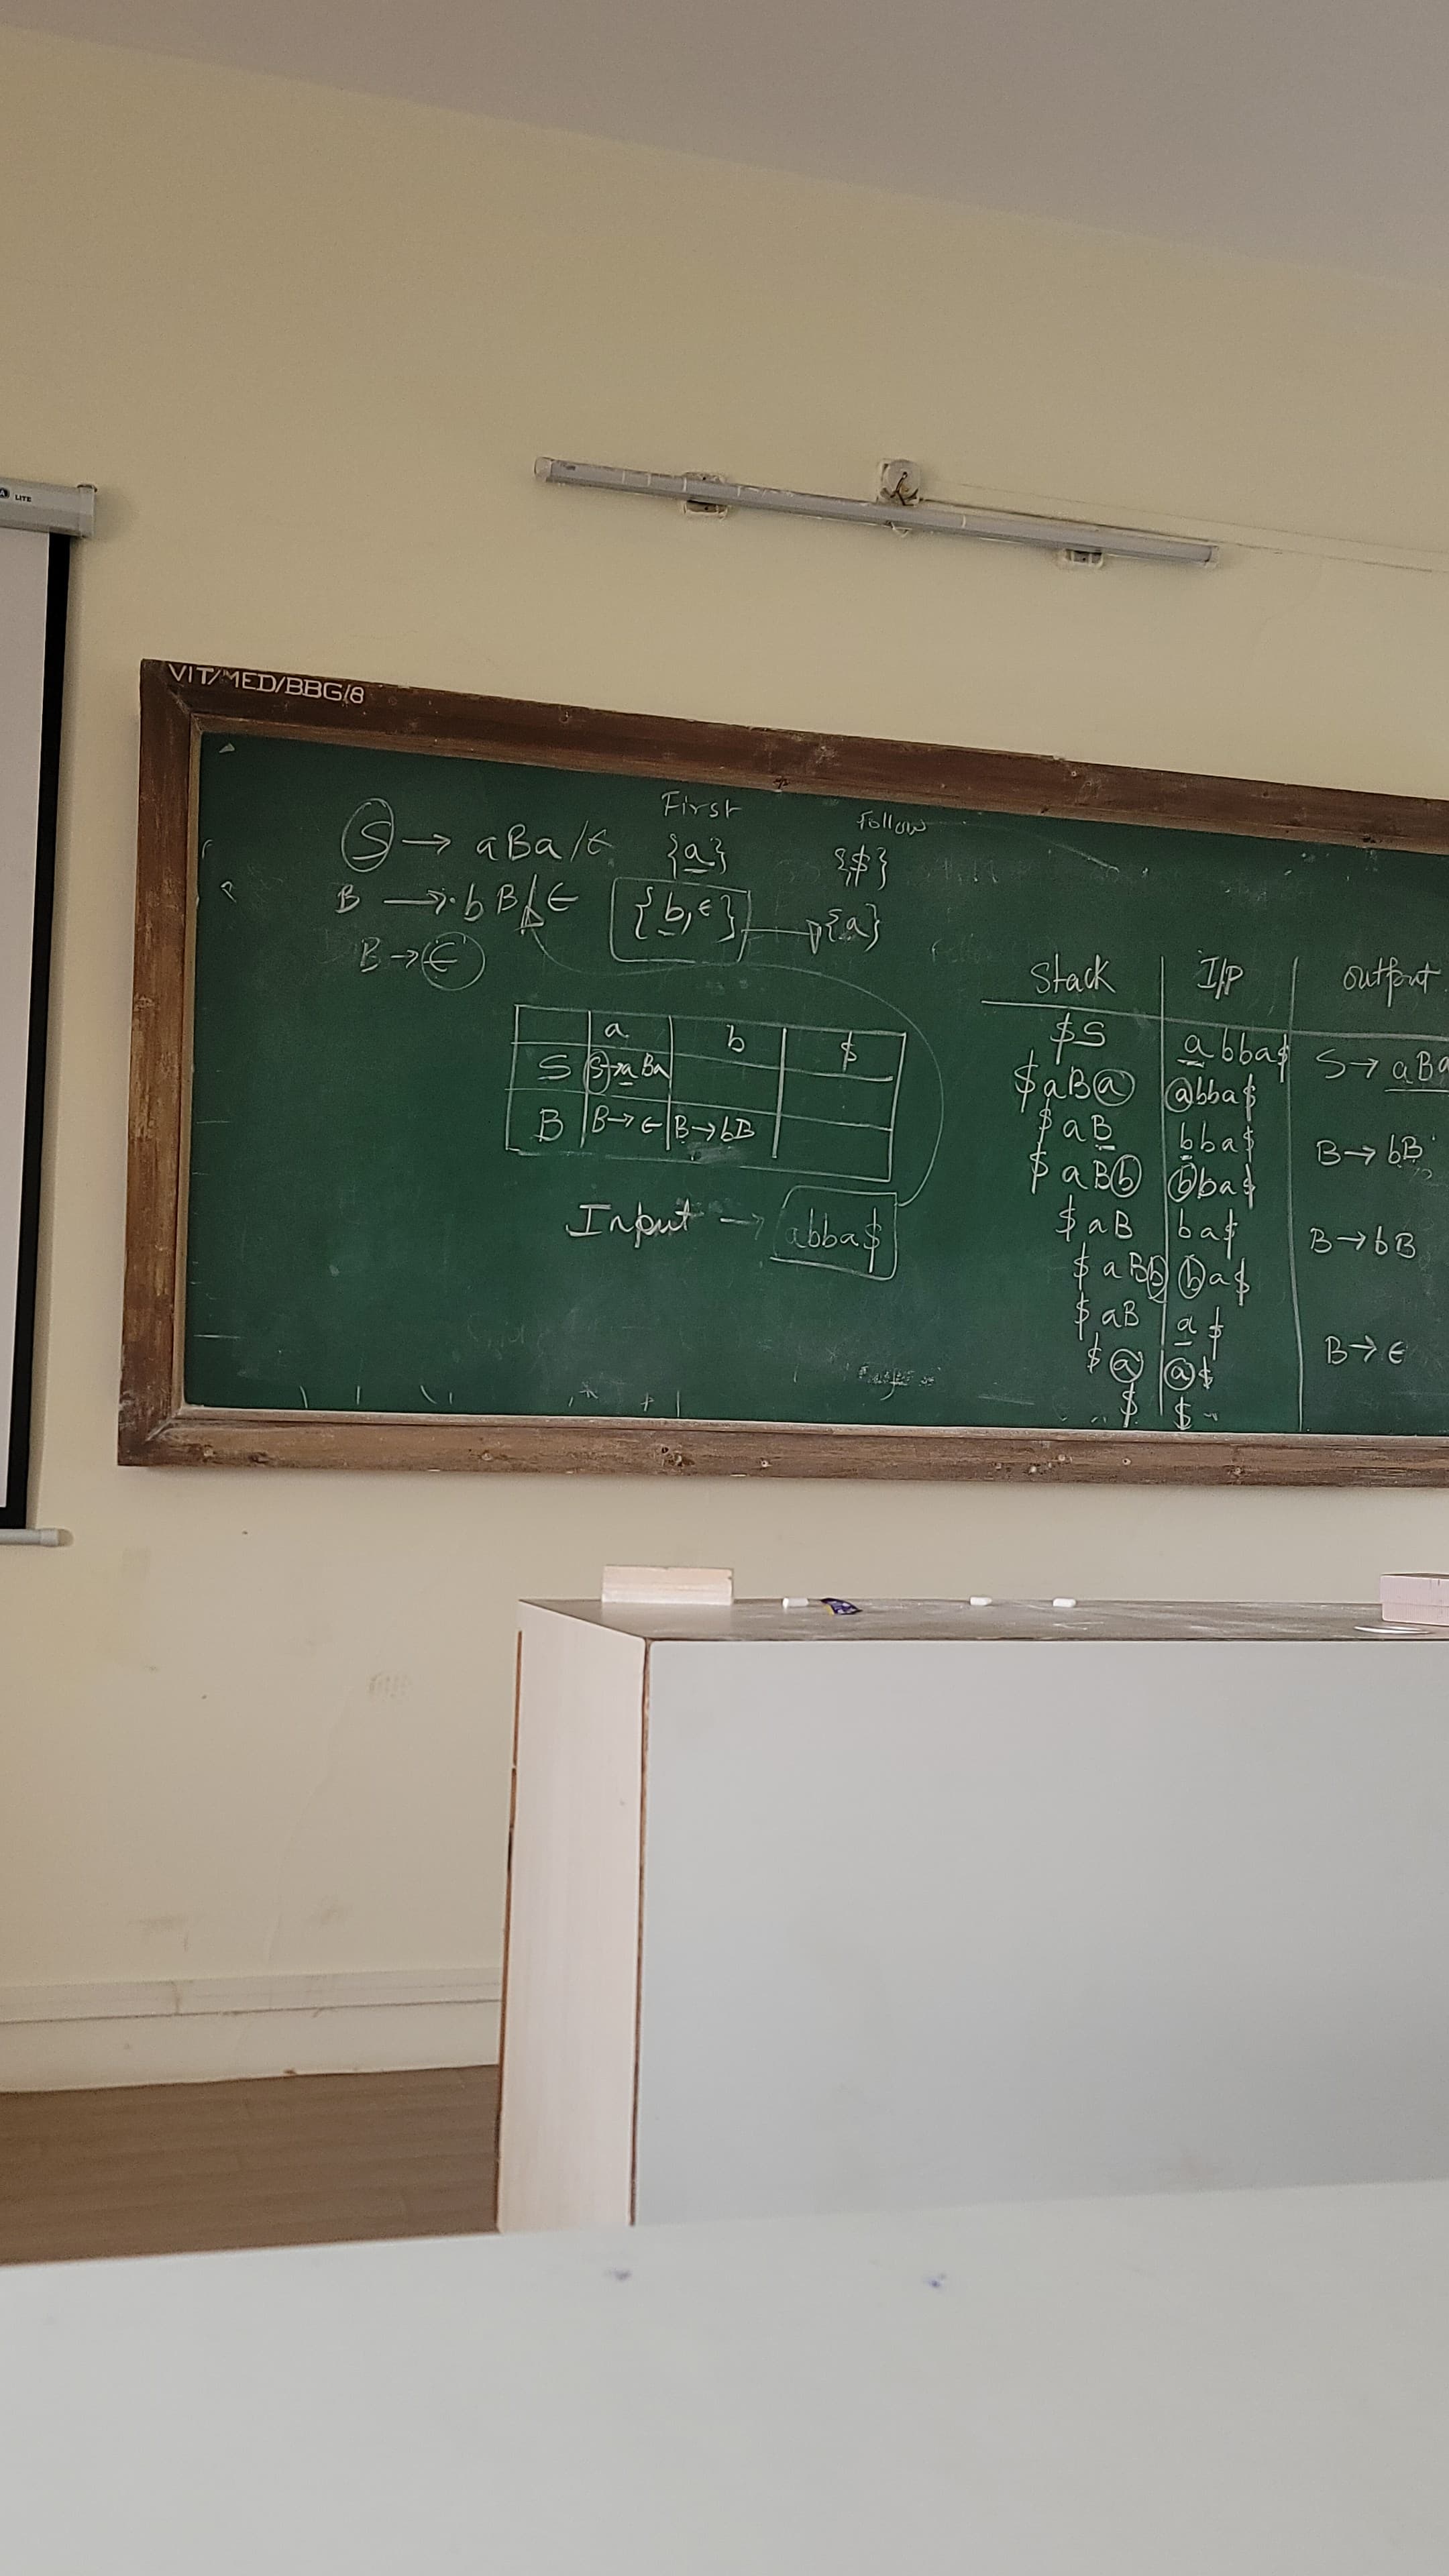 LITE
VIT/MED/BBG/8
First Follow
S → aBa/ε {a} {$}
B → bB/ε {b, ε} → {a}
B → ε
a b $
S S→aBa
B B→ε B→bB
Input → abba$
Stack I/P output
$S abba$ S→ aBa
$aBa abba$
$aB bba$ B→ bB
$aBb bba$
$aB ba$ B→bB
$aBb ba$
$aB a$ B→ ε
$a a$
$ $